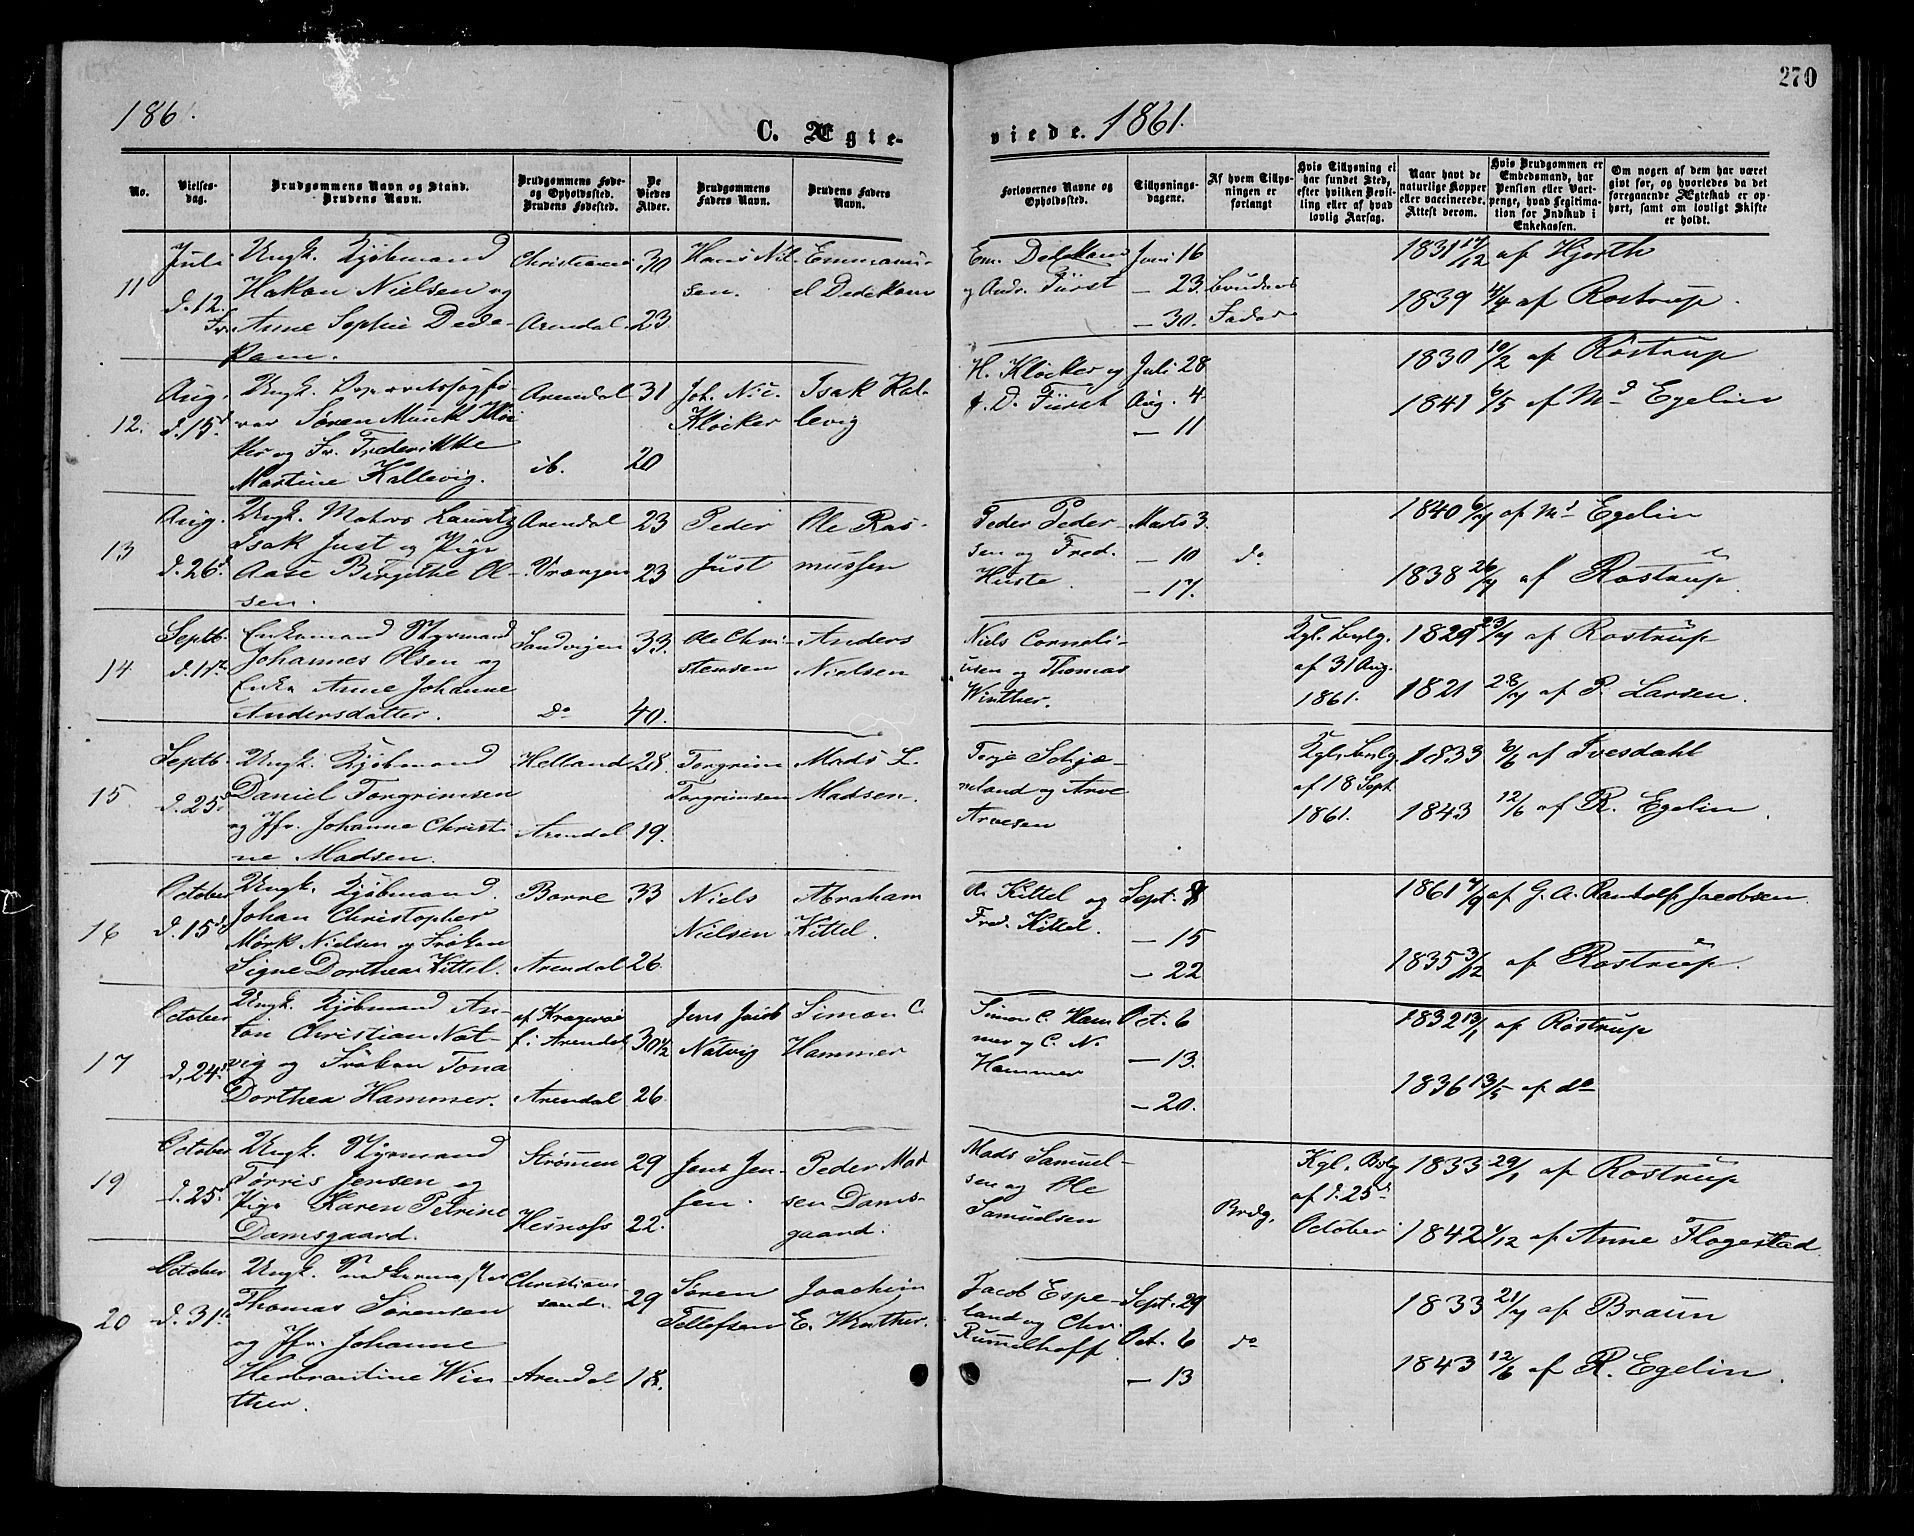 270
186
C. Ægte-
viede. 1861.
No.
Vielses-
dag.
Brudgommens Navn og Stand.
Brudens Navn.
Brudgommens Føde-
og Opholdssted.
Brudens Fødested.
De
Viedes
Alder.
Brudgommens
Faders Navn.
Brudens Faders
Navn.
Forlovernes Navne og
Opholdssted.
Tillysnings-
dagene.
Af hvem Tillys-
ningen er
forlangt
Hvis Tillysning ei
har fundet Sted,
efter hvilken Bevil-
ling eller af hvad
lovlig Aarsag.
Naar havt de
naturlige Kopper
eller vaccinerede.
Attest derom.
Hvis Brudgommen er
Embedsmand, har
Pension eller Vart-
penge, hvad Legitima-
tion for Indskud i
Enkekassen.
Om nogen af dem har været
givt før, og hvorledes da det
foregaaende Ægteskab er op-
hørt, samt om lovligt Skifte
er holdt.
11
Juli
d. 12.
Ungk. Kjøbmand
Hakon Nielsen og
Fr. Anne Sophie Dede-
kam.
Christiania
Arendal
30
23
Hans Nil-
sen.
Emmanu-
el Dedekam
Em. Dedekam
og Andr. Fürst
Juni 16
— 23.
— 30.
Brudens
Fader
1831 17/12 af Hjorth
1839 4/4 af Rostrup.
12.
Aug.
d. 15d
Ungk. Overretssagfø-
rer Søren Munk Klø-
ker og Fr. Frederikke
Martine Kallevig.
Arendal
ib.
31
20
Joh. Nic.
Kløcker
Isak Kal-
levig
H. Kløcker og
J. D. Fürst
Juli 28
Aug. 4
— 11
1830 10/2 af Rostrup
1841 6/5 af Md Egelin
13
Aug.
d. 26d.
Ungk. Lauritz
Isak Just og Pige
Aase Birgithe Ol-
sen.
Arendal
Vrangen
23
23
Peder
Just
Ole Ras-
mussen
Peder Peder-
sen og Fred.
Huste.
Marts 3.
— 10
— 17.
do
1840 af Md Egelin
1838 26/7 af Rostrup
14
Septb.
d. 11te
Enkemand Styrmand
Johannes Olsen og
Enke Anne Johanne
Andersdatter.
Sandvigen
Do
33.
40.
Ole Chri-
stensen
Anders
Nielsen
Niels Corneli-
usen og Thomas
Winther.
Kgl. Bevlg.
af 31 Aug.
1861.
1829 23/7 af Rostrup
1821 28/7 af P. Larsen.
15.
Septb.
d. 25d
Ungk. Kjøbmand
Daniel Torgrimsen
og Jfr. Johanne Christi-
ne Madsen.
Helland
Arendal
28.
19.
Torgrim
Torgrimsen
Mads L.
Madsen.
Terje Schjæ-
meland og Arve
Arvesen
Kgl. Bevlg.
af 18 Sept.
1861.
1833 6/6 af Tvesdahl
1843 12/6 af R. Egelin.
16
October
d. 15d
Ungk. Kjøbmand.
Johan Christopher
Mørk Nielsen og Frøken
Signe Dorthea Kittel.
Borre
Arendal
33
26.
Niels
Nielsen
Abraham
Kittel.
A. Kittel og
Fred. Kittel.
Sept. 8
— 15
— 22
1861 7/9 af G. A. Randolf Jacobsen.
1835 3/12 af Rostrup.
17
October
d. 24d
Ungk. Kjøbmand An-
ton Christian Nat-
vig og Frøken Tona
Dorthea Hammer.
af Kragerøe
f. i Arendal
Arendal
30 1/2
26.
Jens Jacob
Natvig
Simon C.
Hammer
Simon C. Ham
mer og C. N.
Hammer
Oct. 6
— 13.
— 20.
1832 13/1 af Rostrup
1836 13/5 af do
19
October
d. 25d
Ungk. Styrmand
Tørris Jensen og
Pige Karen Petrine
Damsgaard.
Strømmen
Hesnæs
29
22.
Jens Jen-
sen.
Peder Mad
sen Dams-
gaard.
Mads Samuel-
sen og Ole
Samuelsen
Brdg.
Kgl. Bvlg
af d. 25d
October
1833 29/1 af Rostrup
1842 1/12 af Anne Flogestad.
20
October
d. 31te
Ungk. Snedkermester
Thomas Sørensen
og Jfr. Johanne
Herbrantine Win-
ther.
Christians
sand.
Arendal
29
18.
Søren
Tellefsen
Joachim
E. Winther.
Jacob Espe-
land og Chr.
Rummelhoff
Sept. 29
Oct. 6
— 13
do
1833 21/7 af Braun
1843 12/6 af R. Egelin.